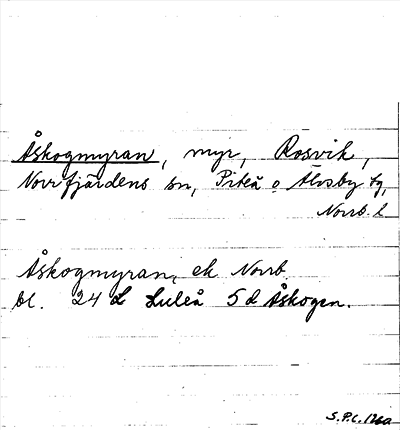 Åskogmyran, myr, Rosvik,
Norrfjärdens sn, Piteå o Älvsby tg,
Norrb. l
Åskogmyran, ek Norrb.
bl. 24 L Luleå 5 d Åskogen.
S.P.L. 126a